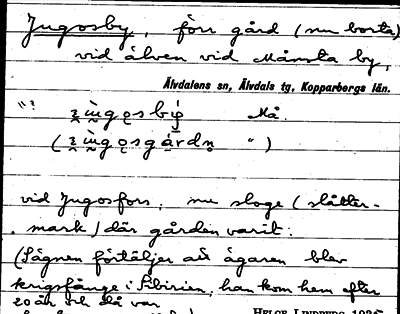 Jugosby, förr gård (nu borta)
vid älven vid Månsta by,
Älvdalens sn, Älvdals tg, Kopparbergs län.
Må.
( " )
vid Jugosfors; nu sloge (slåtter-
mark) där gården varit.
(Sägnen förtäljer att ägaren blev
krigsfånge i Sibirien; han kom hem efter
20 år och då var
HELGE LINDBERG 1935